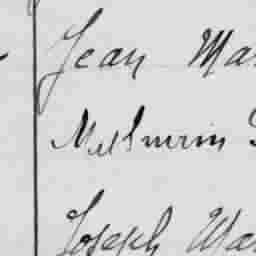 Jean Ma
Mathurin
Joseph Ma